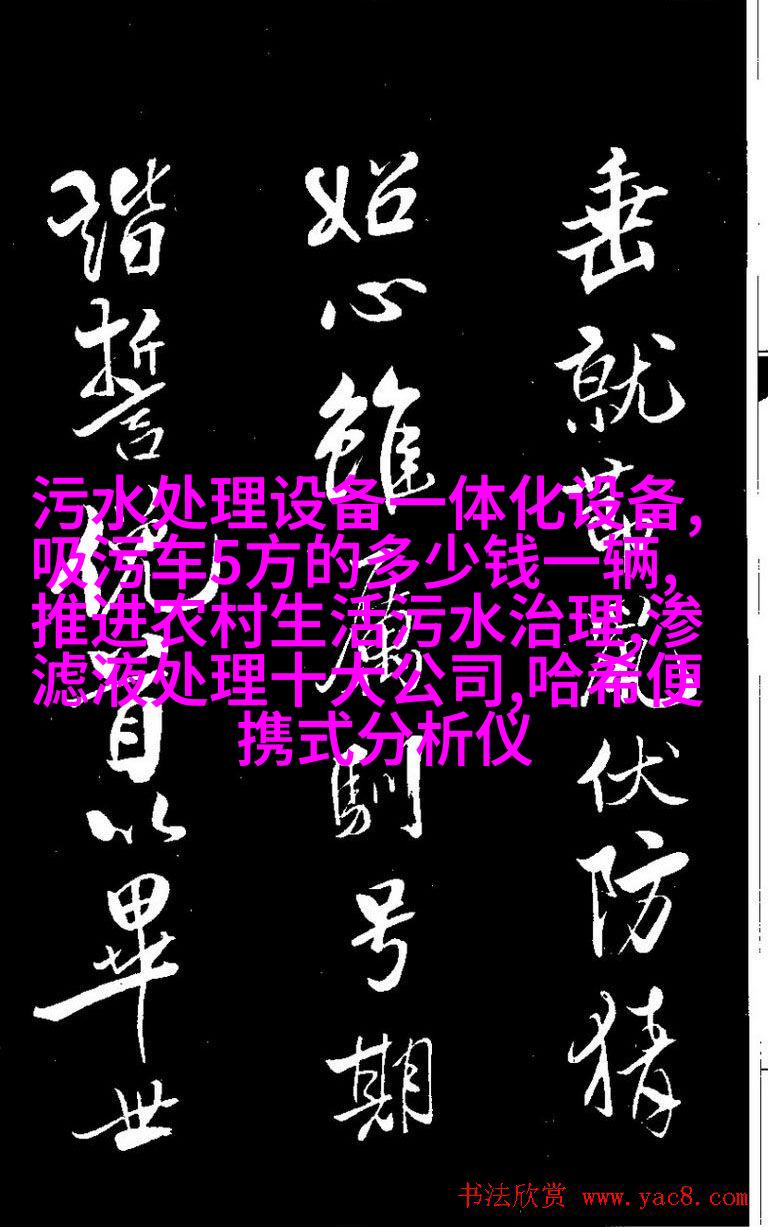 垂就伏防猜
心雖馴号期
誓首以畢世
污水处理设备一体化设备,
吸污车5方的多少钱一辆,
推进农村生活污水治理,渗
滤液处理十大公司,哈希便
携式分析仪
书法欣赏 www.yac8.com